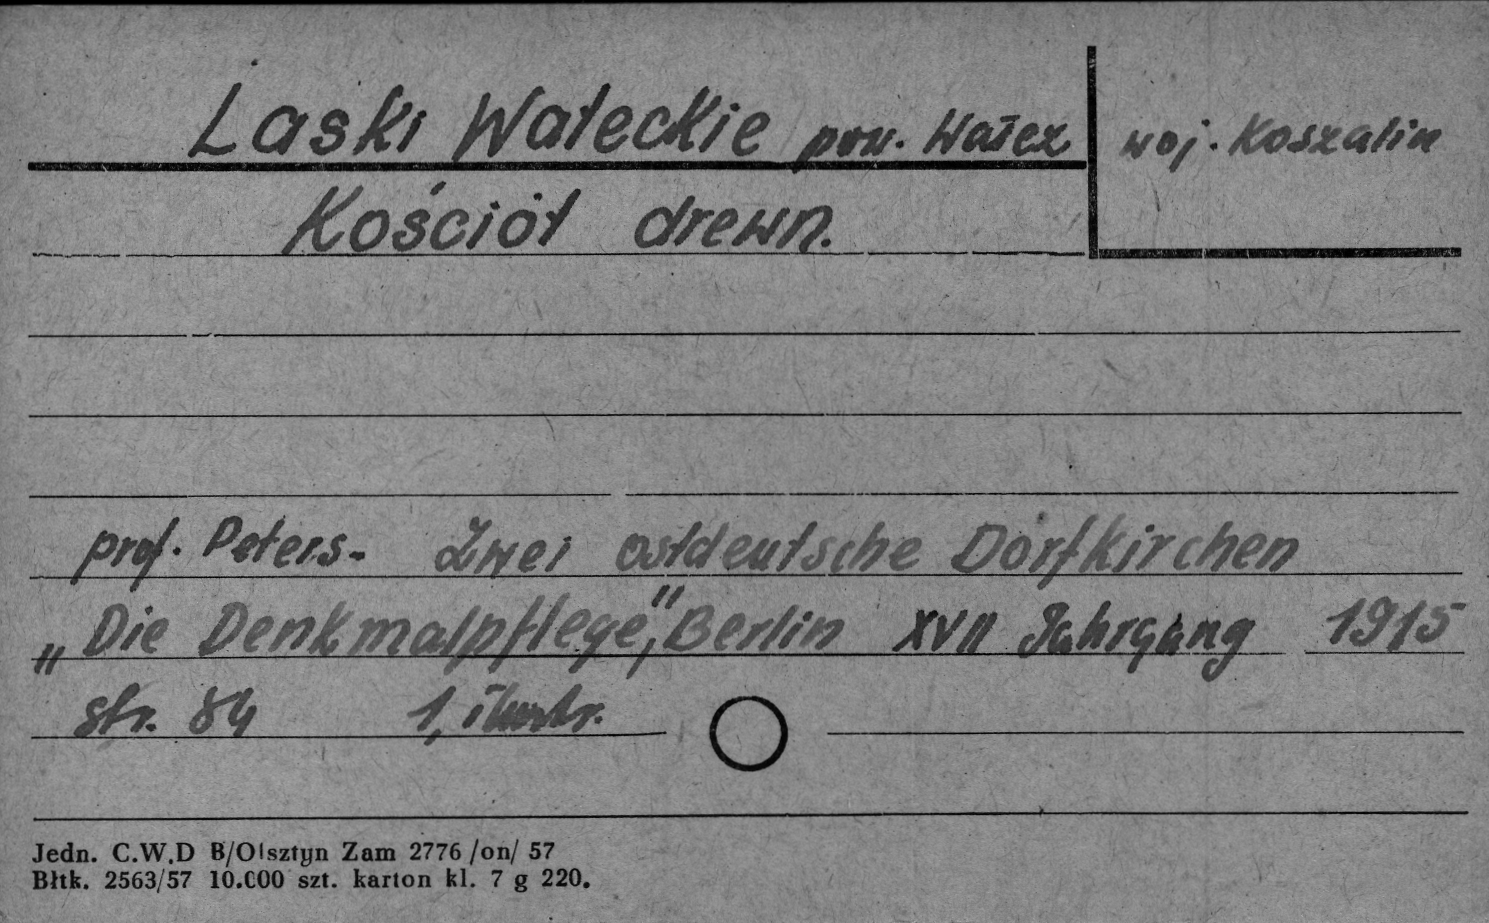 Laski Wałeckie pow. Wałcz woj. Koszalin
Kościół drewn.
prof. Peters - Zwei ostdeutsche Dorfkirchen
„Die Denkmalpflege", Berlin XVII Jahrgang 1915
str. 84 1, ilustr.
Jedn. C.W.D B/Olsztyn Zam 2776 /on/ 57
Błtk. 2563/57 10.000 szt. karton kl. 7 g 220.